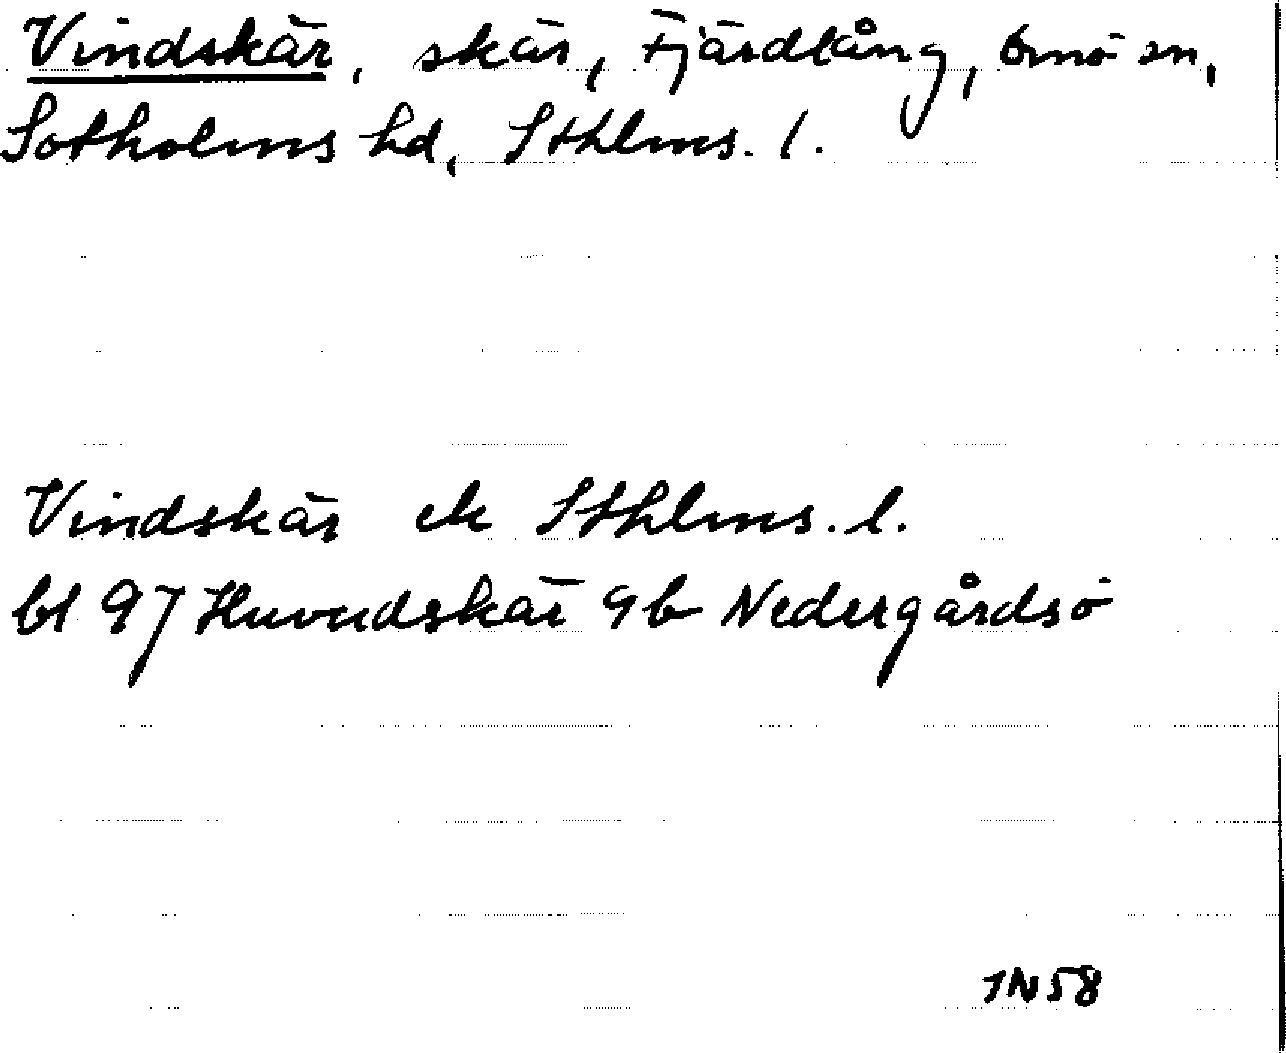 Vindskär, skär, Fjärdlång, Ornö sn,
Sotholms hd, Sthlms. l.
Vindskär ek Sthlms. l.
bl 97 Huvudskär 9b Nedergårdsö
IN58